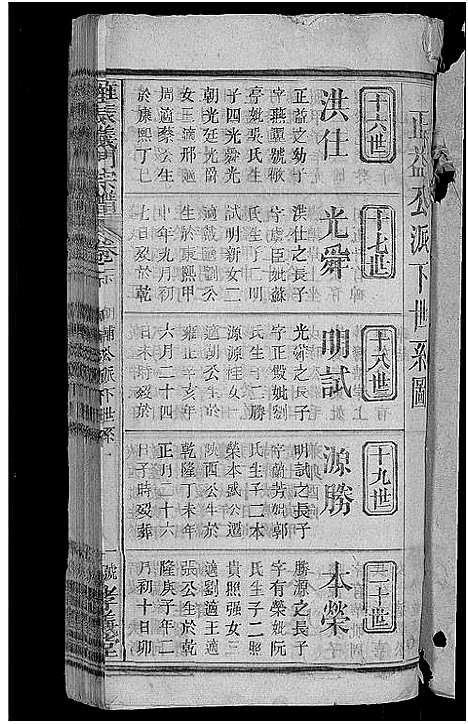 正益公派下世系圖
十六世
洪仕
正益之幼子
字燕謀號敏
亭妣吳氏生
子四光舜光
朝光廷光
女三適邢適
周適蔡公生
於康熙丁巳
十七世
光舜
洪仕之長子
字虞臣妣蘇
氏生子二明
試明新女二
適戴適劉公
生於康熙甲
申年九月初
七日歿於乾
十八世
明試
光舜之長子
字正毅妣劉
氏生子二勝
源源桂女一
適朝公生於
雍正辛亥年
六月二十四
日未時歿於
十九世
源勝
明試之長子
字蘭芳妣郭
氏生子二本
榮本盛公遷
陝西公生於
乾隆丁未年
正月二十六
日子時歿葬
二十世
本榮
勝源之長子
字有榮妣阮
氏生子二照
貴照强女三
適劉適王適
張公生於乾
隆庚子年二
月初十日卯
義門宗譜
卷
公派下世系
一
號
堂